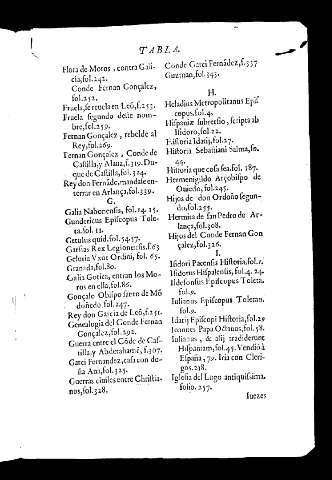 TABLA.
Flota de Moros, contra Gali-
cia, fol.242.
Conde Fernan Gonçalez,
fol.252.
Fruela, se rruela en Leõ, f.253.
Fruela segundo deste nom-
bre, fol.259.
Fernan Gonçalez, rebelde al
Rey, fol.269.
Fernan Gonçalez, Conde de
Castilla, y Alaua, f.319. Du-
que de Castilla, fol.324.
Rey don Fernãdo, mandase en-
terrar en Arlança, fol.339.
G.
Galia Nabonensis, fol. 14.15.
Gundericus Episcopus Tole-
ta. fol. 11.
Getulus quid. fol.54.17.
Garsias Rex Legionensis, f.63
Geloria Vxor Ordini, fol. 65.
Granada, fol.80.
Galia Gotica, entran los Mo-
ros en ella, fol.86.
Gonçalo Obispo santo de Mõ
doñedo. fol.247.
Rey don Garcia de Leõ, f.251.
Genealogia del Conde Fernan
Gonçalez, fol.292.
Guerra entre el Cõde de Cas-
tilla, y Abderahamẽ, f.307.
Garci Fernandez, casa con do-
ña Aua, fol.325.
Guerras ciuiles entre Christia-
nos, fol.328.
Conde Garci Fernãdez, f.337
Guzman, fol.343.
H.
Heladius Metropolitanus Epis
copus. fol.4.
Hispaniæ subuersio, scripta ab
Isidoro, fol 22.
Historia Idatij, fol.27.
Historia Sebastiani Salma, fo.
44.
Historia que cosa sea. fol. 187.
Hermenigildo Arçobispo de
Ouiedo, fol.245.
Hijos de don Ordoño segun-
do, fol.255.
Hermita de san Pedro de Ar-
lança, fol.308.
Hijos del Conde Fernan Gon
çalez, fol.326.
I.
Isidori Pacensis Historia, fol.1.
Isidorus Hispalensis, fol.4. 24.
Ildefonsus Episcopus Toleta.
fol.9.
Iulianus Episcopus Toletan.
fol.9.
Idatij Episcopi Historia, fol.29
Ioannes Papa Octauus, fol.58.
Iulianus, & alij tradiderunt
Hispaniam, fol.45. Vendio à
España, 79. Iria con Cleri-
gos. 238.
Iglesia del Lugo antiquissima.
folio. 257.
Iuezes